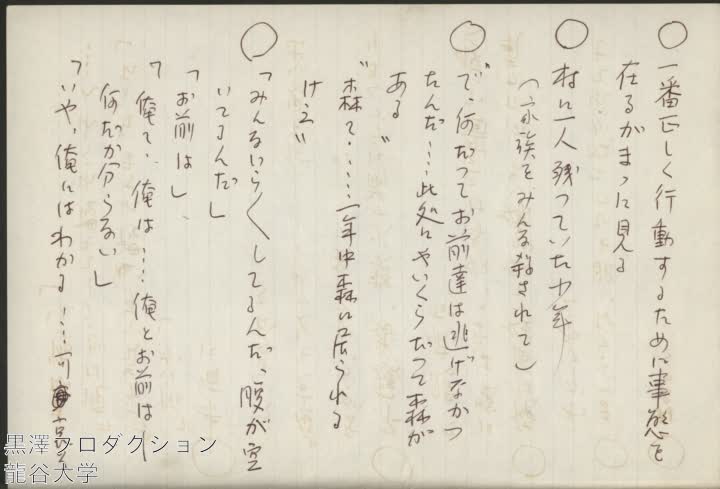 ○一番正しく行動するために事態を
在るがまゝに見る
○村に一人残つていた少年
(家族をみんな殺されて)
○"で、何だつてお前達は逃げなかつ
たんだ……此処にやいくらだつて森が
ある"
"森て……一年中森に居られる
けえ"
○「みんないら〱してるんだ、腹が空
いてるんだ」
「お前は」
「俺て、俺は……俺とお前は―
何だか分らない」
「いや、俺にはわかる……可哀
黒澤プロダクション
龍谷大学